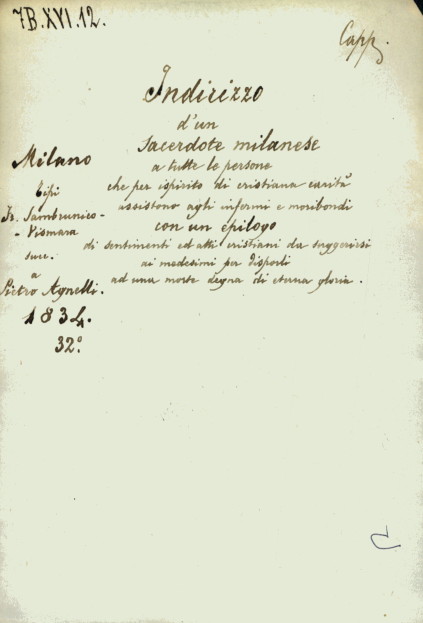 7B.XVI.12.
Capp.
Indirizzo
d'un
Sacerdote milanese
a tutte le persone
che per ispirito di cristiana carità
assistono agli infermi e moribondi
con un epilogo
di sentimenti ed atti cristiani da suggerirsi
ai medesimi per disporli
ad una morte degna di eterna gloria.
Milano
Tipi
Fr. Sambrunico-
-Vismara
succ.
a
Pietro Agnelli.
1834.
32º.